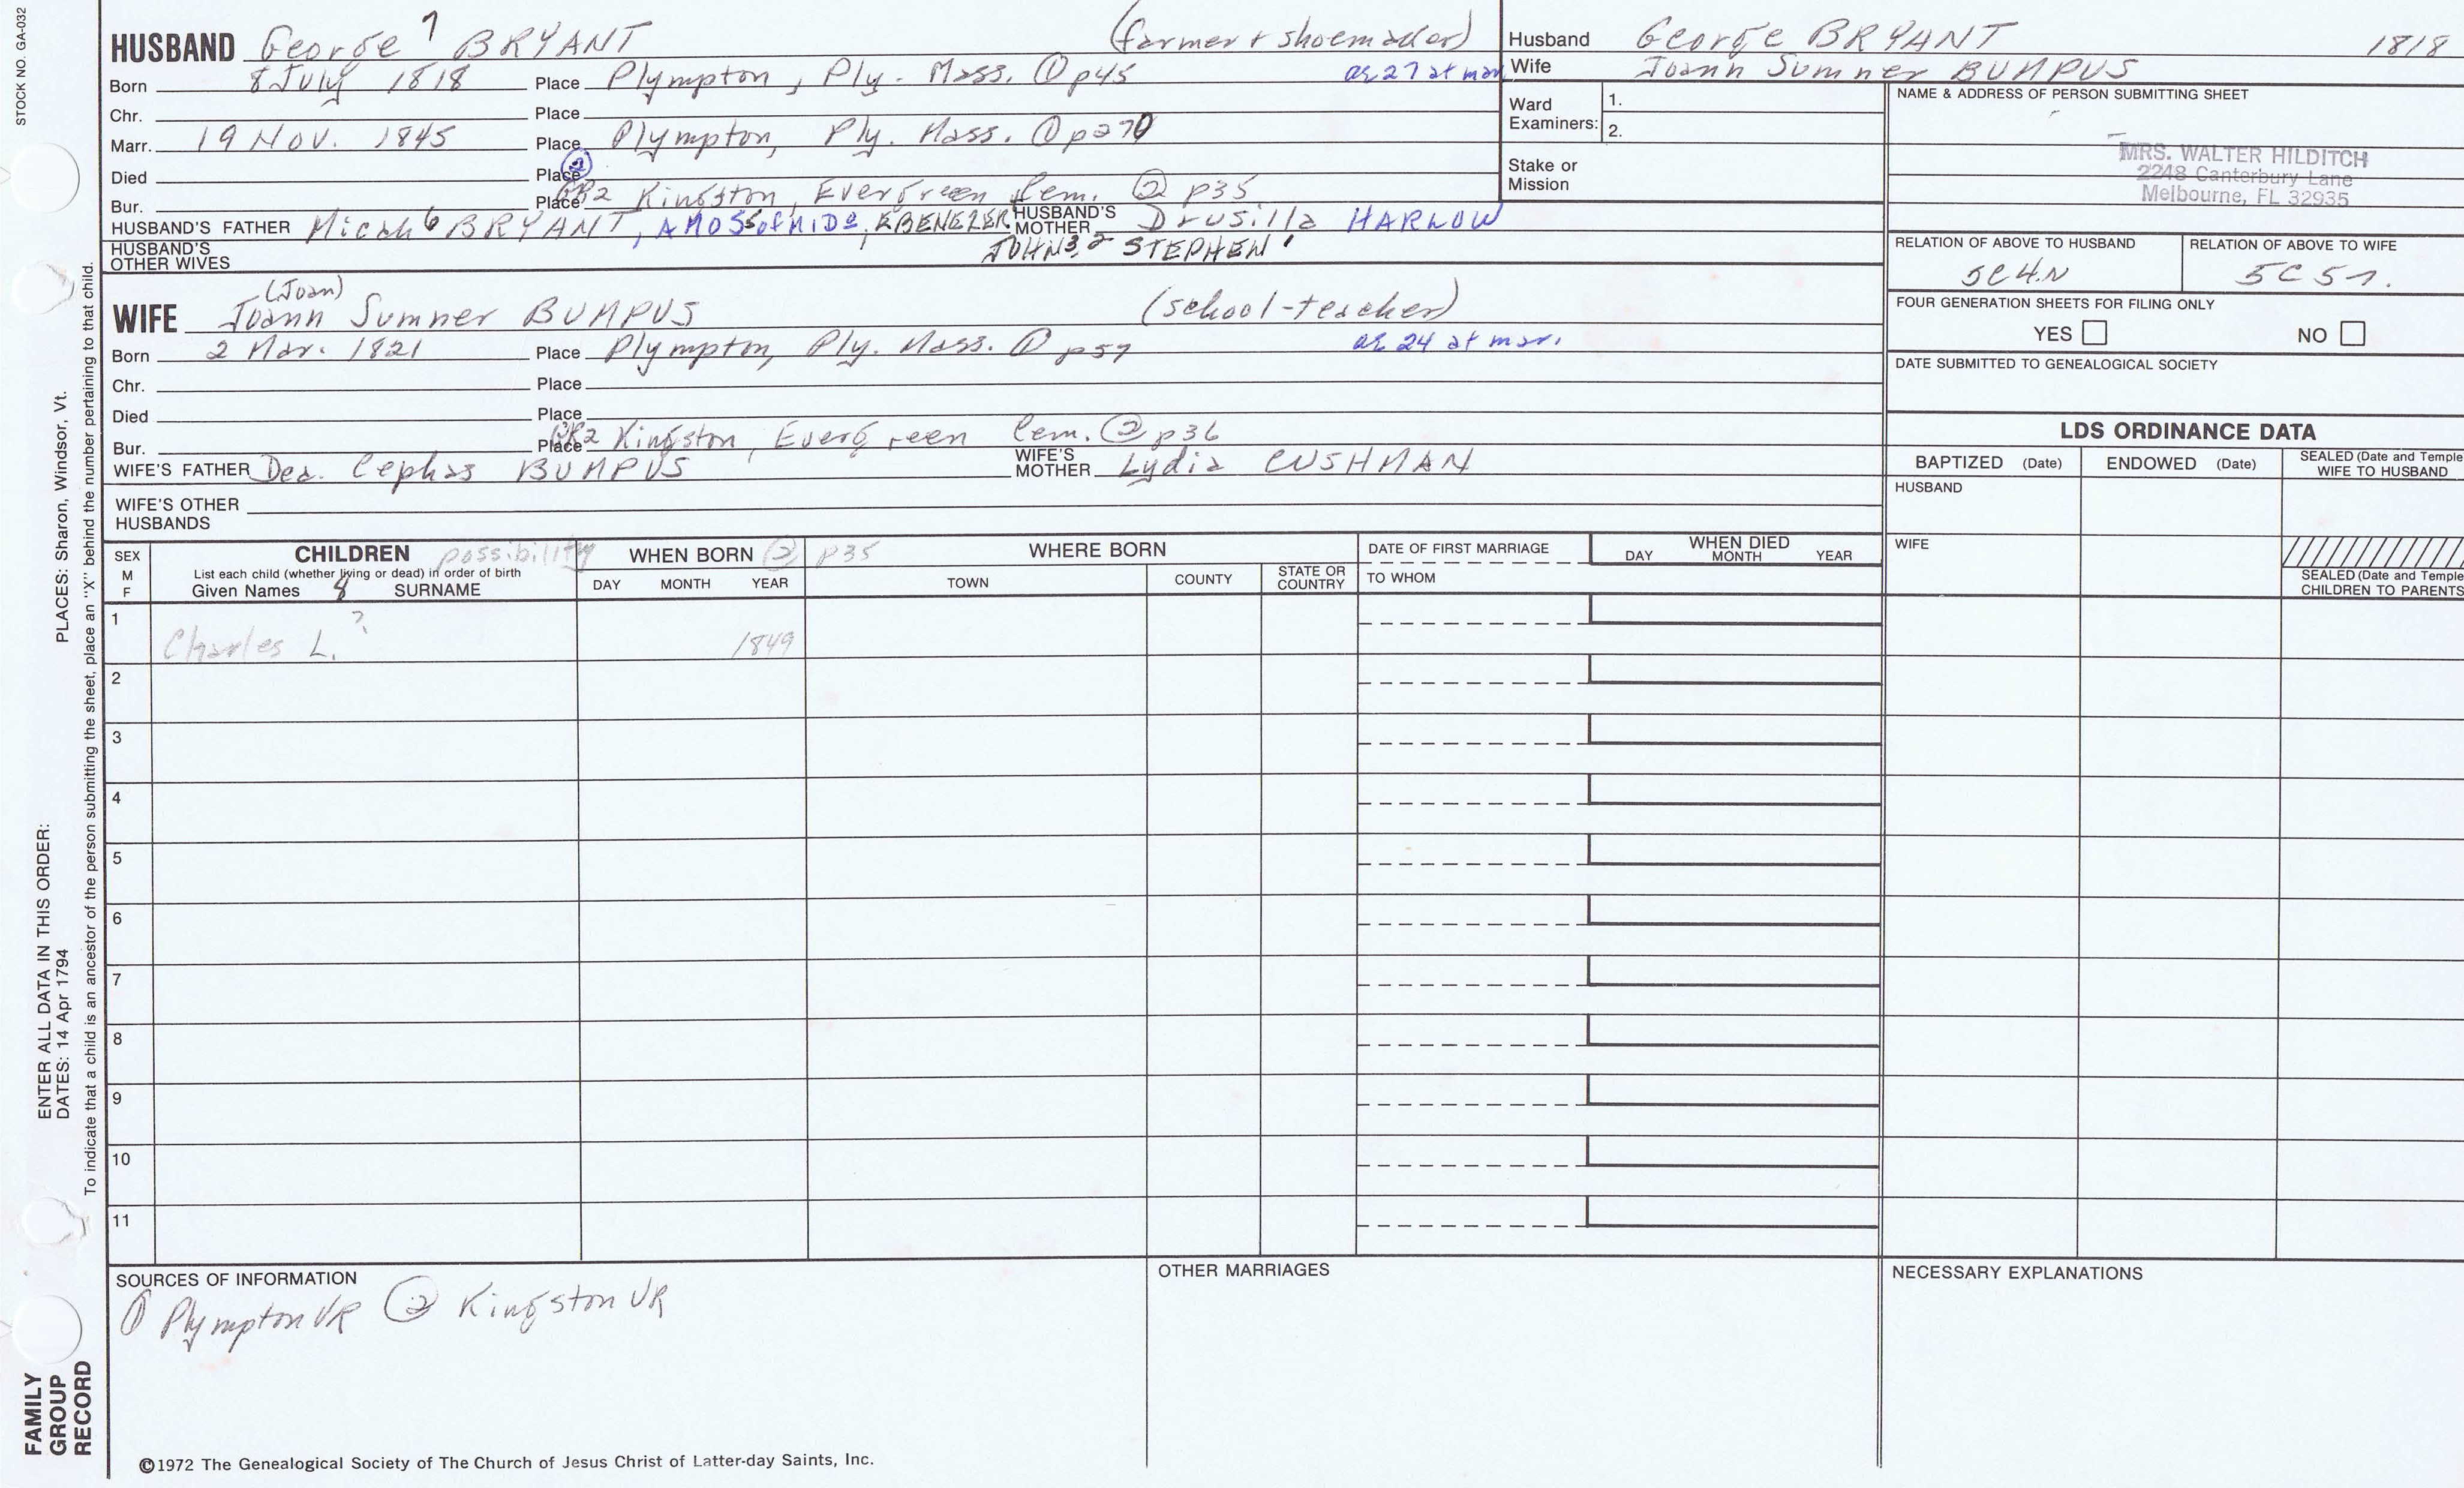 STOCK NO. GA-032
HUSBAND George 7 BRYANT (farmer + shoemaker)
Born 8 July 1818 Place Plympton, Ply. Mass. ① p45 ae 27 at mar
Chr. Place
Marr. 19 Nov. 1845 Place Plympton, Ply. Mass. ① p270
Died Place ②
Bur. Place GR2 Kingston, Evergreen Cem. ② p35
HUSBAND'S FATHER Micah 6 BRYANT, AMOS 5 of MIDo, EBENEZER HUSBAND'S MOTHER Drusilla HARLOW
HUSBAND'S OTHER WIVES JOHN 3, 2 STEPHEN 1
(Joan)
WIFE Joann Sumner BUMPUS (school-teacher)
Born 2 Mar. 1821 Place Plympton, Ply. Mass. ① p57 ae 24 at mar.
Chr. Place
Died Place
Bur. Place GR2 Kingston, Evergreen Cem. ② p36
WIFE'S FATHER Dea. Cephas BUMPUS WIFE'S MOTHER Lydia CUSHMAN
WIFE'S OTHER HUSBANDS
Husband George BRYANT 1818
Wife Joann Sumner BUMPUS
Ward Examiners: 1.
2.
Stake or Mission
NAME & ADDRESS OF PERSON SUBMITTING SHEET
MRS. WALTER HILDITCH
2248 Canterbury Lane
Melbourne, FL 32935
RELATION OF ABOVE TO HUSBAND RELATION OF ABOVE TO WIFE
5C4.N 5C5
FOUR GENERATION SHEETS FOR FILING ONLY
YES NO
DATE SUBMITTED TO GENEALOGICAL SOCIETY
LDS ORDINANCE DATA
BAPTIZED (Date) ENDOWED (Date) SEALED (Date and Temple) WIFE TO HUSBAND
HUSBAND
WIFE
SEALED (Date and Temple) CHILDREN TO PARENTS
SEX M F
CHILDREN possibility
List each child (whether living or dead) in order of birth
Given Names & SURNAME
WHEN BORN ② p35
DAY MONTH YEAR
WHERE BORN
TOWN COUNTY STATE OR COUNTRY
DATE OF FIRST MARRIAGE
TO WHOM
WHEN DIED
DAY MONTH YEAR
1 Charles L. ? 1849
2
3
4
5
6
7
8
9
10
11
SOURCES OF INFORMATION
① Plympton VR ② Kingston VR
OTHER MARRIAGES
NECESSARY EXPLANATIONS
©1972 The Genealogical Society of The Church of Jesus Christ of Latter-day Saints, Inc.
FAMILY GROUP RECORD
ENTER ALL DATA IN THIS ORDER:
DATES: 14 Apr 1794
PLACES: Sharon, Windsor, Vt.
To indicate that a child is an ancestor of the person submitting the sheet, place an "X" behind the number pertaining to that child.